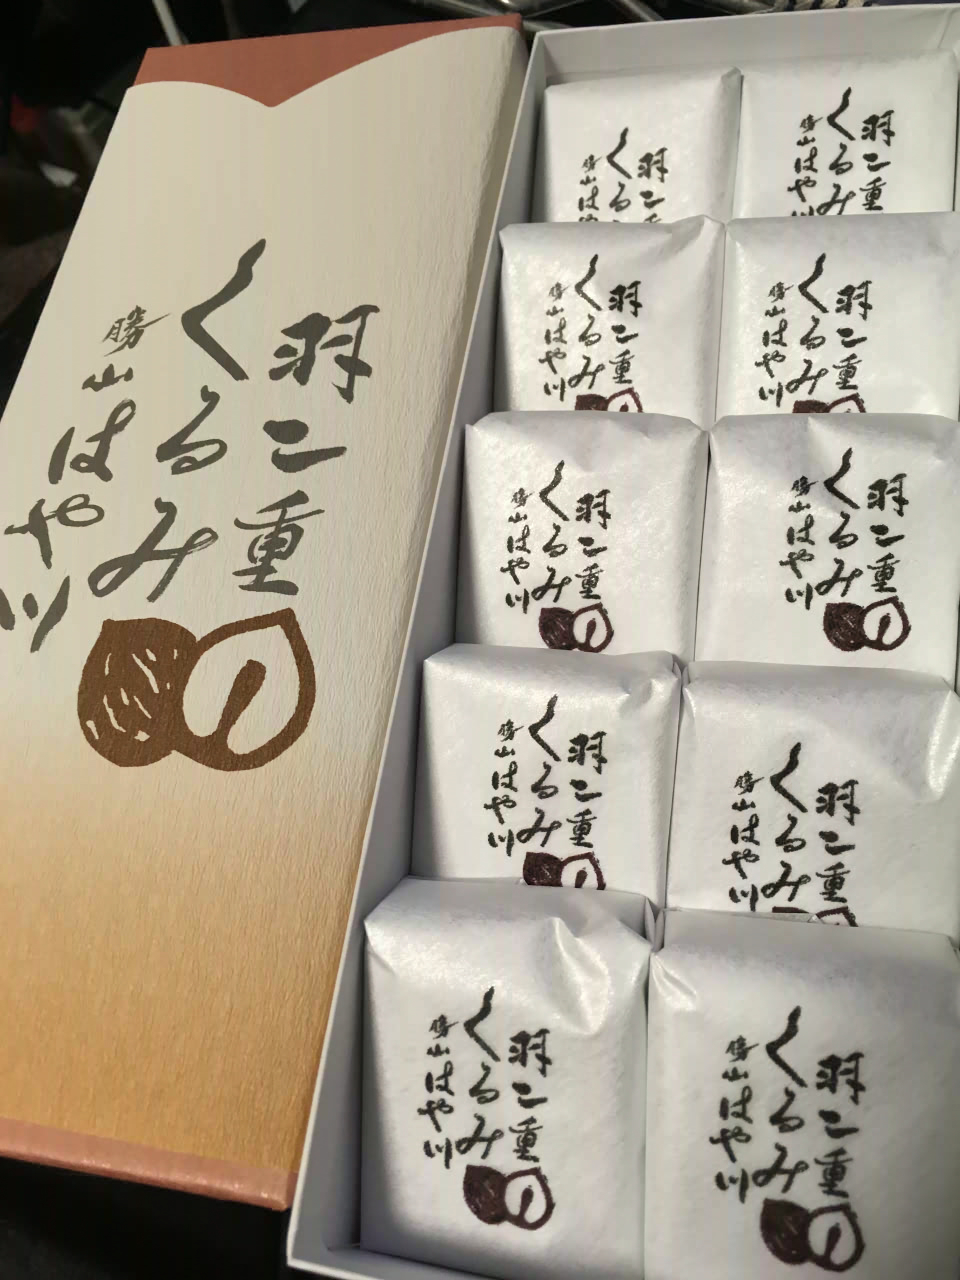 羽二重
くるみ
勝山はや川
羽二
くる
勝山は
羽二重
くるみ
勝山はや
羽二重
くるみ
勝山はや川
羽二重
くるみ
勝山はや川
羽二重
くるみ
勝山はや川
羽二重
くるみ
勝山はや川
羽二重
くるみ
勝山はや川
羽二重
くるみ
勝山はや川
羽二重
くるみ
勝山はや川
羽二重
くるみ
勝山はや川